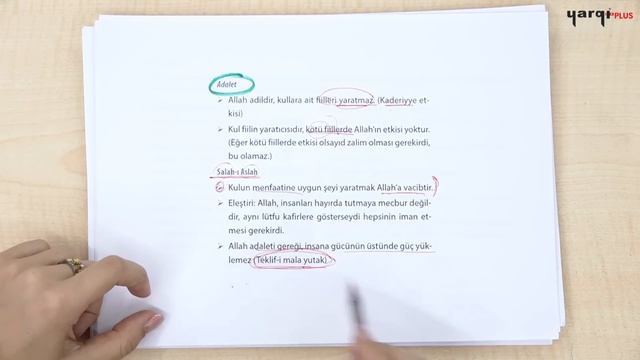 yargı PLUS
Adalet
➢ Allah adildir, kullara ait fiilleri yaratmaz. (Kaderiyye et-
kisi)
➢ Kul fiilin yaratıcısıdır, kötü fiillerde Allah'ın etkisi yoktur.
(Eğer kötü fiillerde etkisi olsayıd zalim olması gerekirdi,
bu olamaz.)
Salah-ı Aslah
Kulun menfaatine uygun şeyi yaratmak Allah'a vacibtir.
➢ Eleştiri: Allah, insanları hayırda tutmaya mecbur değil-
dir, aynı lütfu kafirlere gösterseydi hepsinin iman et-
mesi gerekirdi.
➢ Allah adaleti gereği, insana gücünün üstünde güç yük-
lemez (Teklif-i mala yutak)